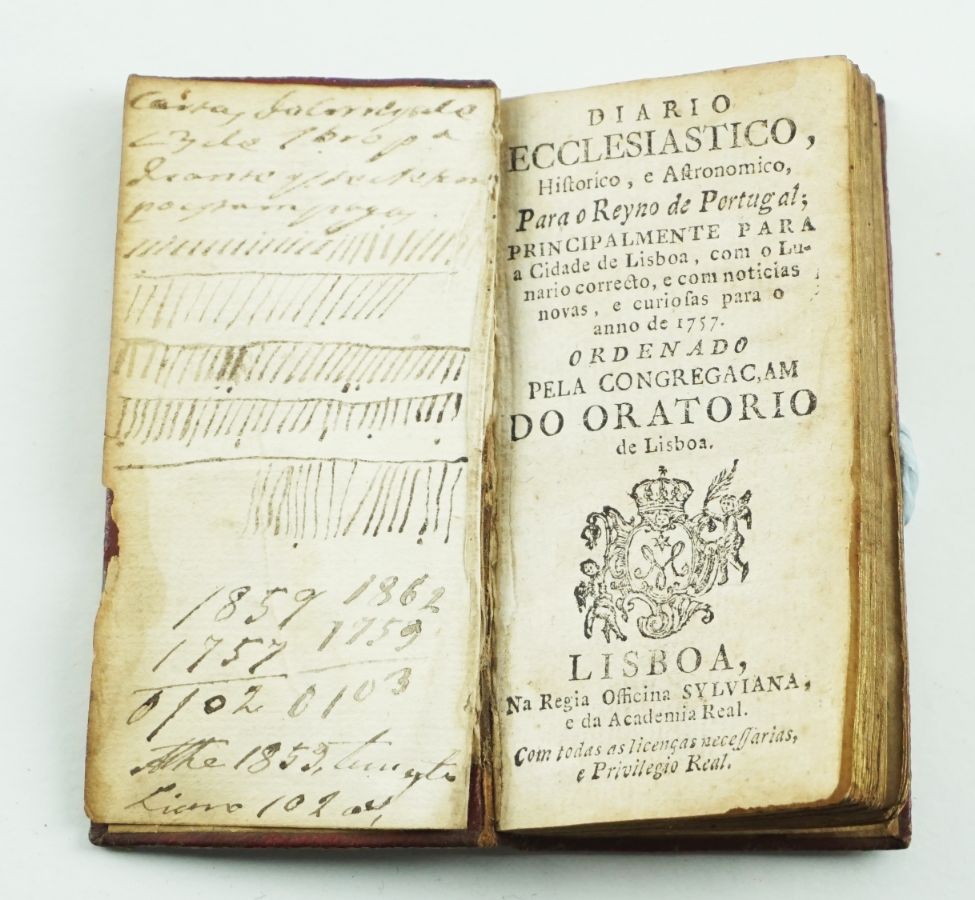 1859 1862
1757 1759
0102 0103
Athe 1859, tem este
Livro 102 as,
DIARIO
ECCLESIASTICO,
Hiſtorico, e Aſtronomico,
Para o Reyno de Portugal;
PRINCIPALMENTE PARA
a Cidade de Lisboa, com o Lu-
nario correcto, e com noticias
novas, e curioſas para o
anno de 1757.
ORDENADO
PELA CONGREGAC,AM
DO ORATORIO
de Lisboa.
LISBOA,
Na Regia Officina SYLVIANA,
e da Academia Real.
Com todas as licenças neceſſarias,
e Privilegio Real.